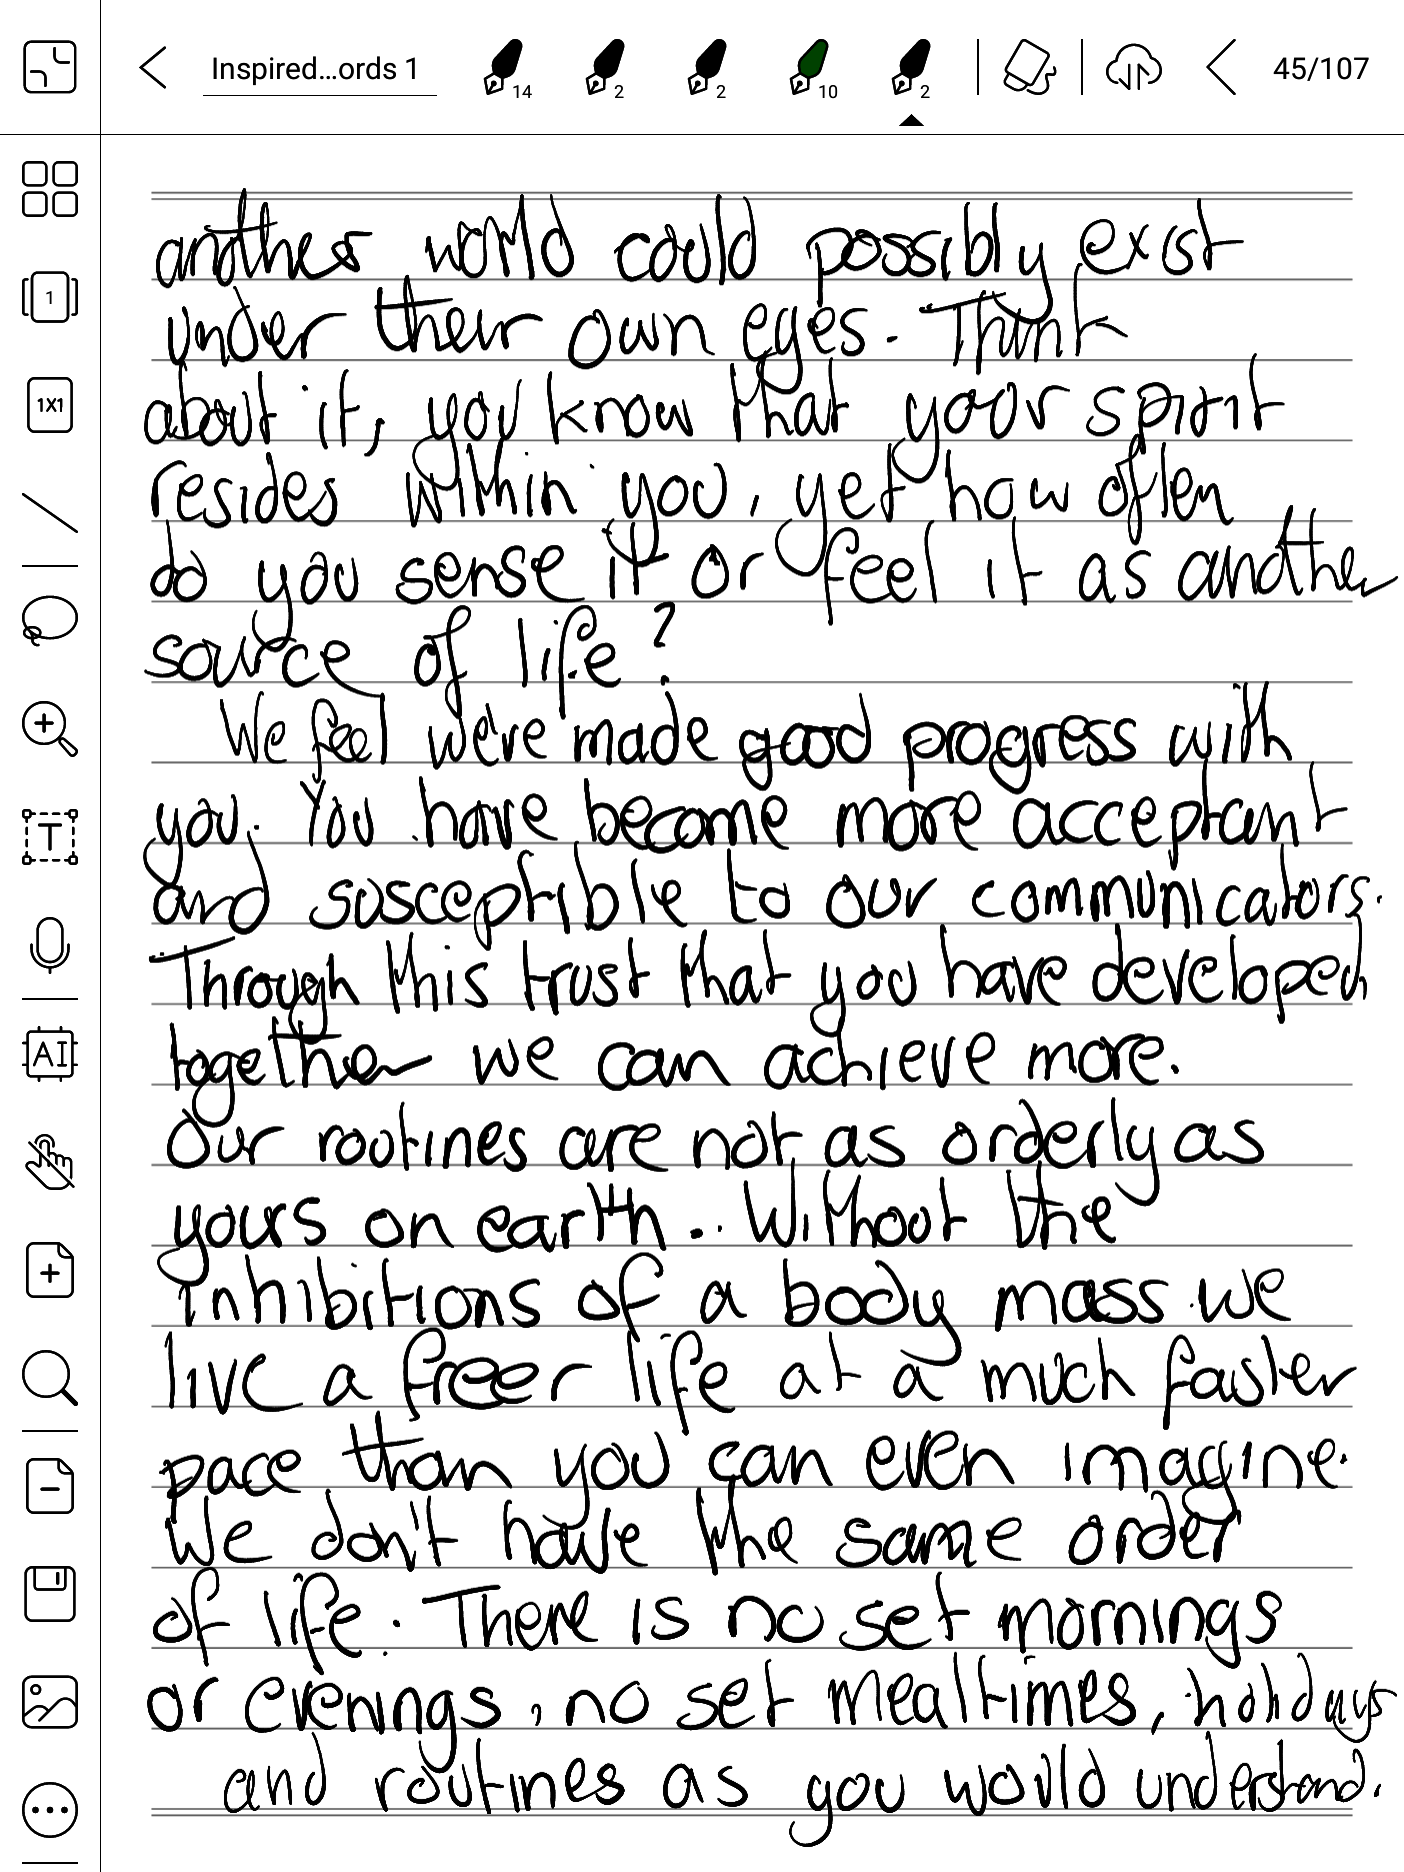 Inspired...ords 1
14
2
2
10
2
45/107
1
1X1
T
AI
another world could possibly exist
under their own eyes. Think
about it, you know that your spirit
resides within you, yet how often
do you sense it or feel it as another
source of life?
We feel we've made good progress with
you. You have become more acceptant
and susceptible to our communicators.
Through this trust that you have developed
together we can achieve more.
Our routines are not as orderly as
yours on earth.. Without the
inhibitions of a body mass we
live a freer life at a much faster
pace than you can even imagine.
We don't have the same order
of life. There is no set mornings
or evenings, no set mealtimes, holidays
and routines as you would understand.